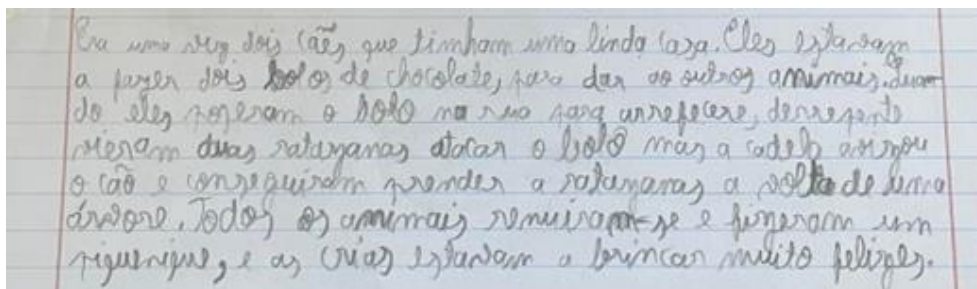 Era uma vez dois cães que timham uma linda casa. Eles estavam
a fazer dois bolos de chocolate, para dar ao outros amimais. Quan-
do eles poseram o bolo na rua para arrefecere, derrepente
vieram duas ratazanas atacar o bolo mas a cadela avizou
o cão e conseguiram prender a ratazanas a volta de uma
árvore. Todos os amimais renuiram-se e fizeram um
piquenique, e as crias estavam a brincar muito felizes.